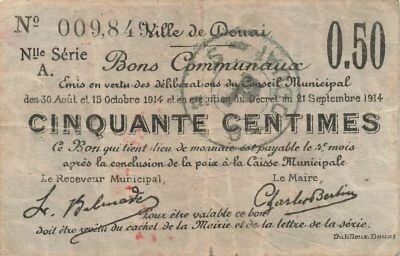 No 009,849 Ville de Douai
Nlle Série A.
Bons Communaux
0.50
Emis en vertu des délibérations du Conseil Municipal
des 30 Août et 15 Octobre 1914 et en exécution du Décret du 21 Septembre 1914
CINQUANTE CENTIMES
Ce Bon qui tient lieu de monnaie est payable le 4e mois
après la conclusion de la paix à la Caisse Municipale
Le Receveur Municipal, Le Maire,
Charles Bertin
Pour être valable ce bon
doit être revêtu du cachet de la Mairie et de la lettre de la série.
Dutilleux. Douai